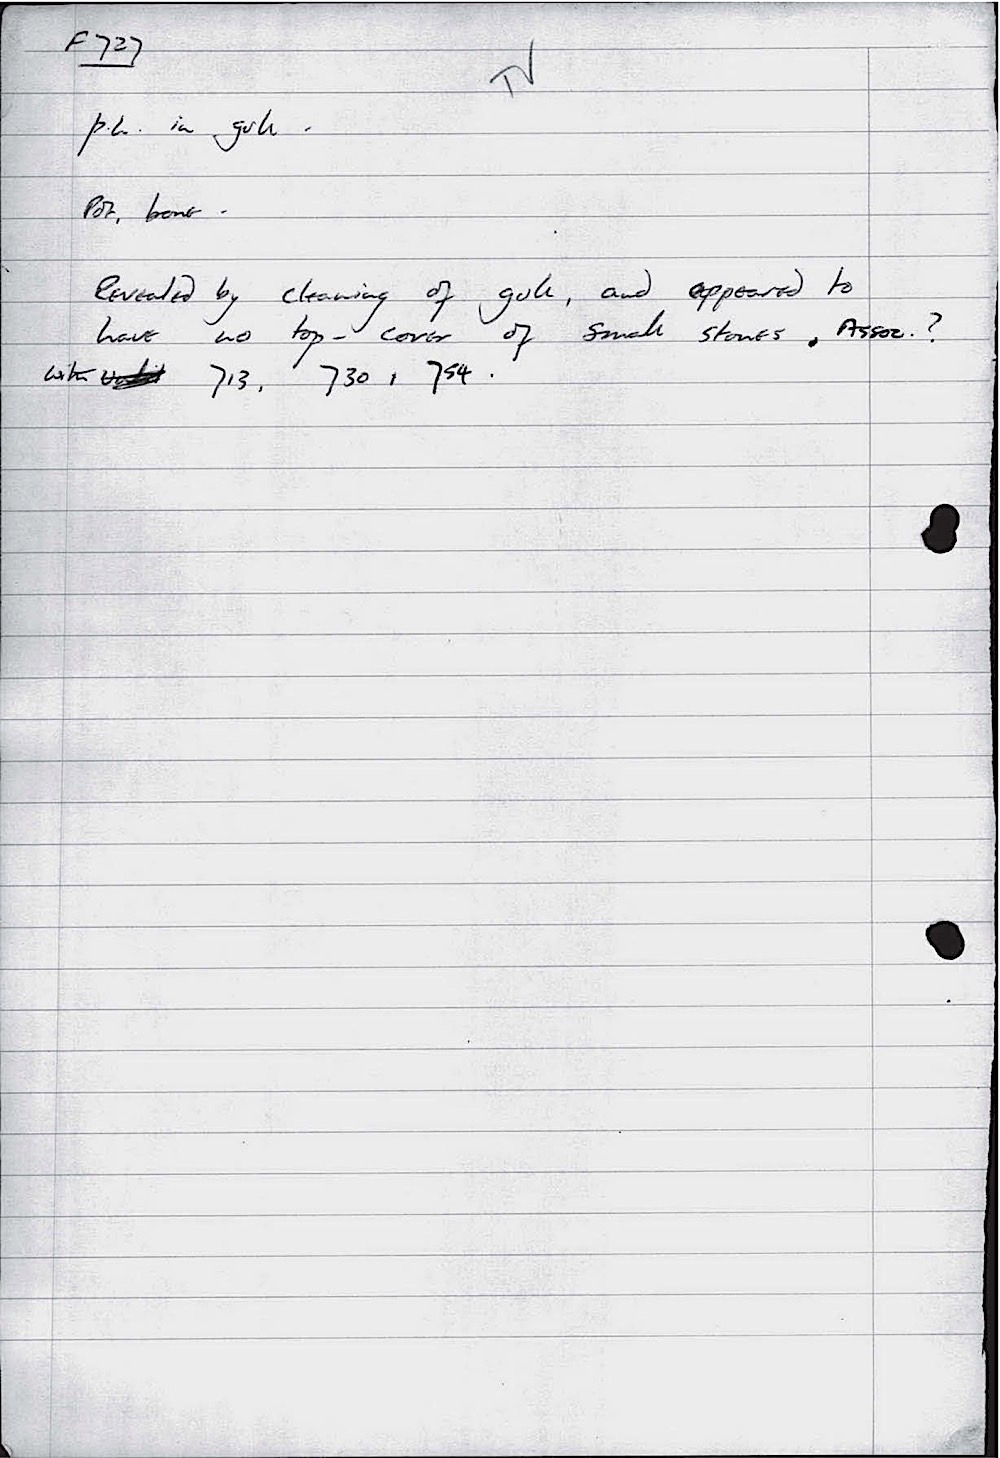 F727
TV
p.h. in gull.
Pot, bone.
Revealed by cleaning of gull, and appeared to
have no top-cover of small stones. Assoc.?
with 713, 730, 754.